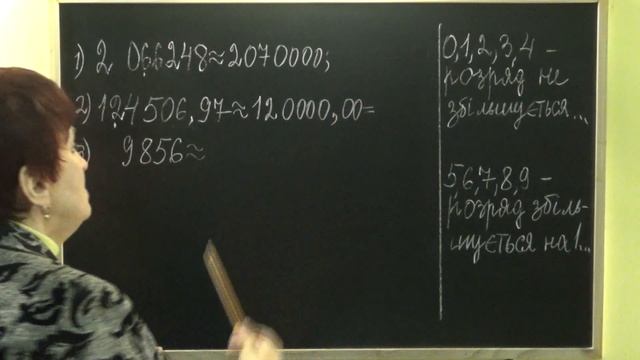 1) 2 066248≈2070000;
2) 124506,97≈120000,00=
) 9856≈
0,1,2,3,4 –
розряд не
збільшується...
5 6,7,8,9 –
розряд збіль-
шується на 1...